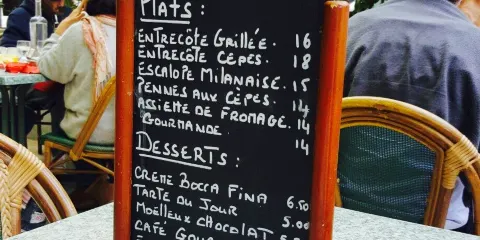 PLATS :
ENTRECÔTE GRILLÉE. 16
ENTRECÔTE CÈPES. 18
ESCALOPE MILANAISE. 15
PENNES AUX CÈPES. 14
ASSIETTE DE FROMAGE. 14
GOURMANDE 14
DESSERTS :
CREME BOCCA FINA 6.50
TARTE DU JOUR 5.00
MOËLLEUX CHOCOLAT
CAFÉ